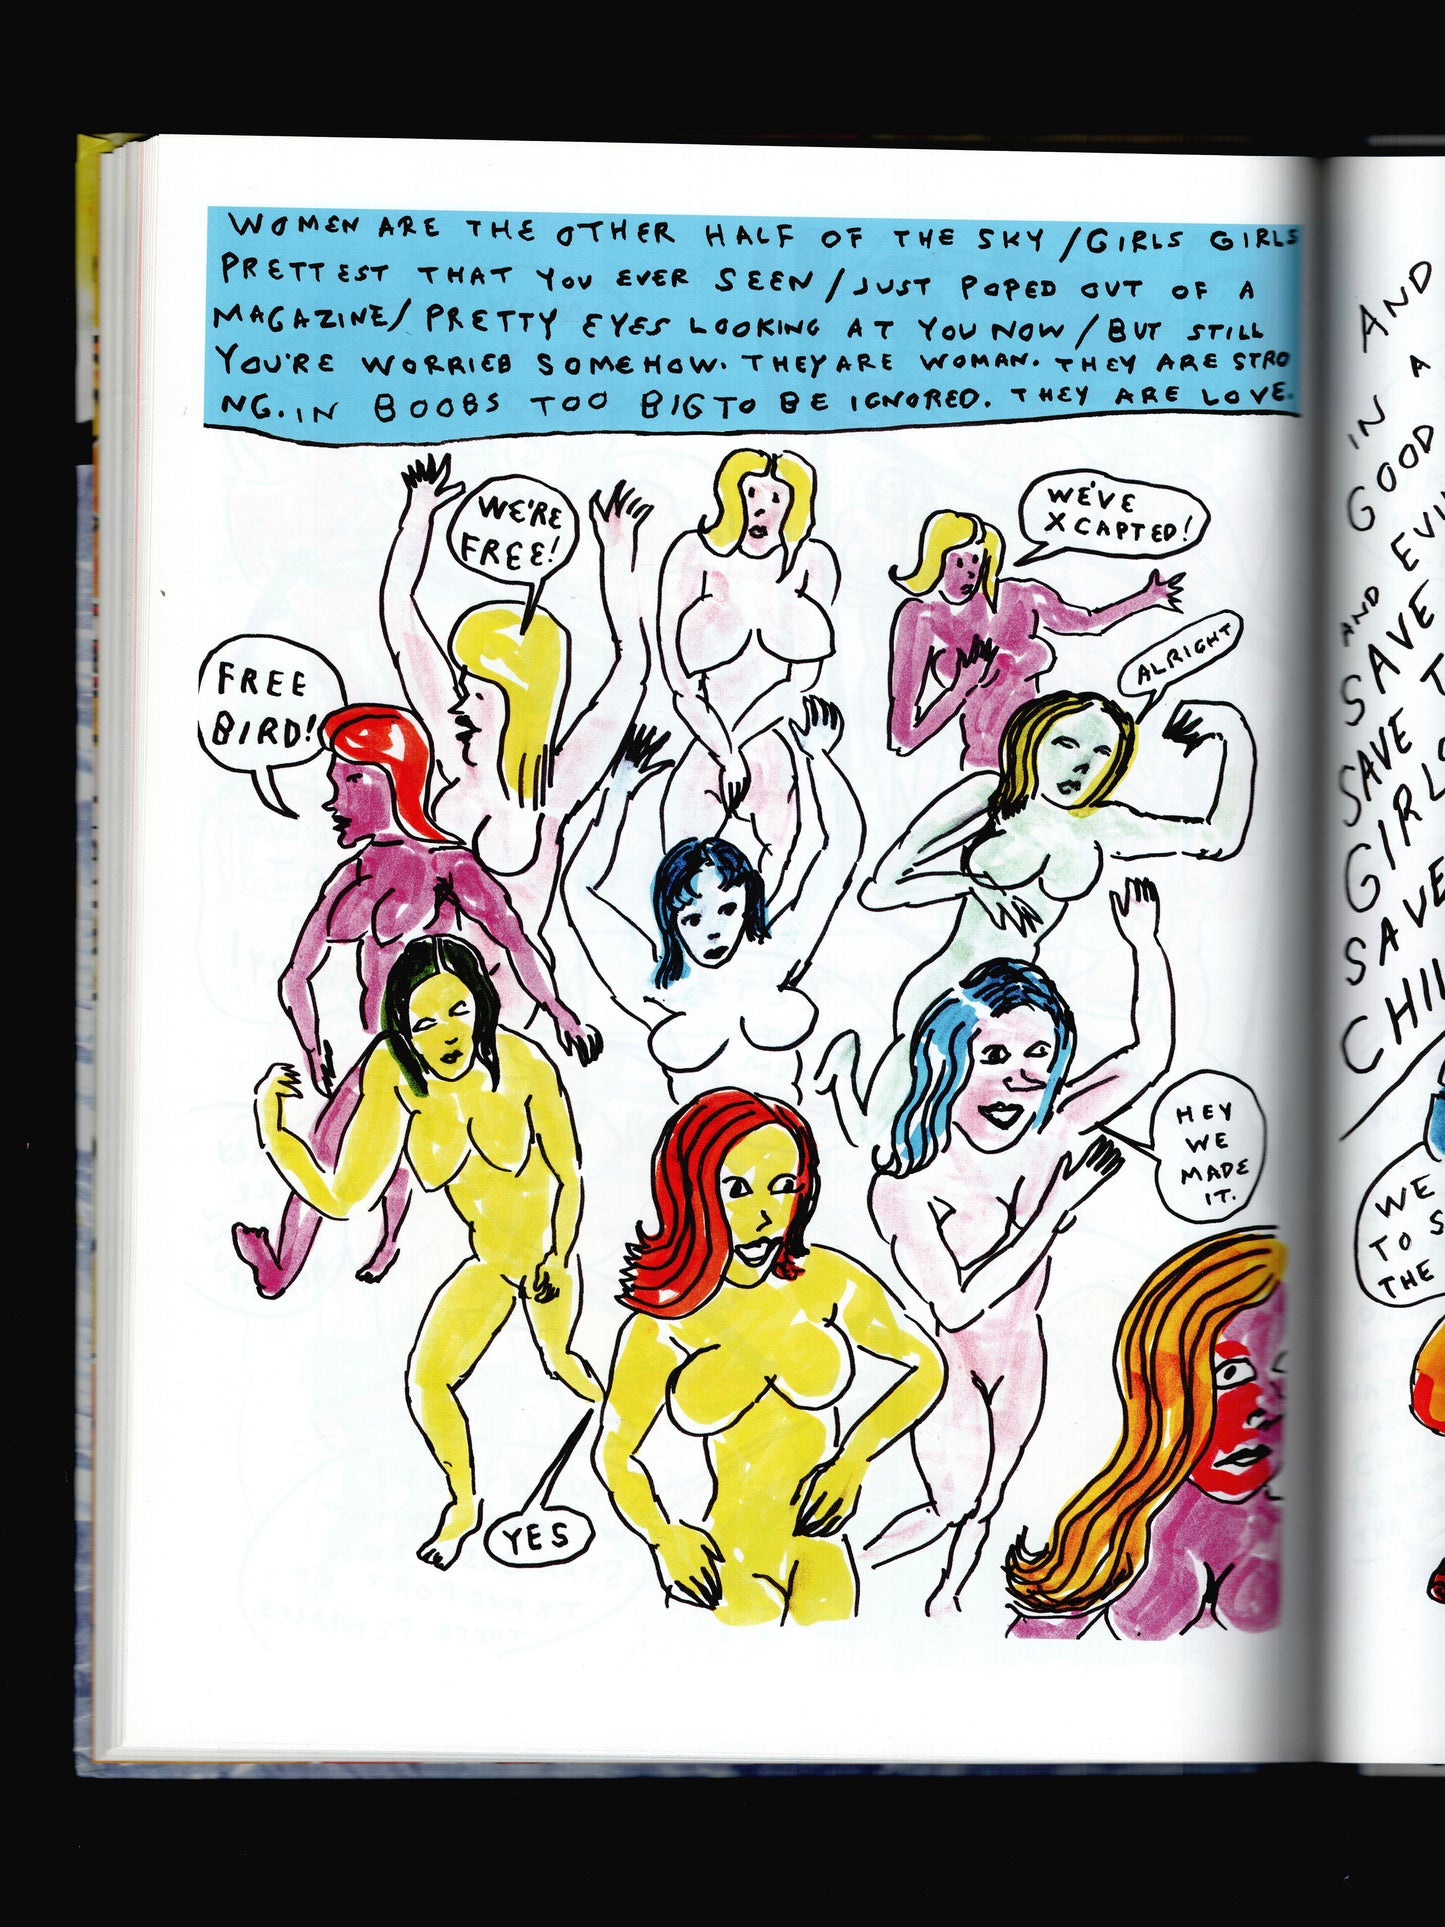 WOMEN ARE THE OTHER HALF OF THE SKY / GIRLS GIRLS
PRETTEST THAT YOU EVER SEEN / JUST POPED OUT OF A
MAGAZINE / PRETTY EYES LOOKING AT YOU NOW / BUT STILL
YOU'RE WORRIED SOMEHOW. THEY ARE WOMAN. THEY ARE STRO
NG. IN BOOBS TOO BIG TO BE IGNORED. THEY ARE LOVE.
WE'RE
FREE!
WE'VE
XCAPTED!
ALRIGHT
FREE
BIRD!
HEY
WE
MADE
IT.
YES
AND
IN A
GOOD
AND EVI
SAVE
SAVE T
GIRLS
SAVE
CHIL
WE
TO S
THE